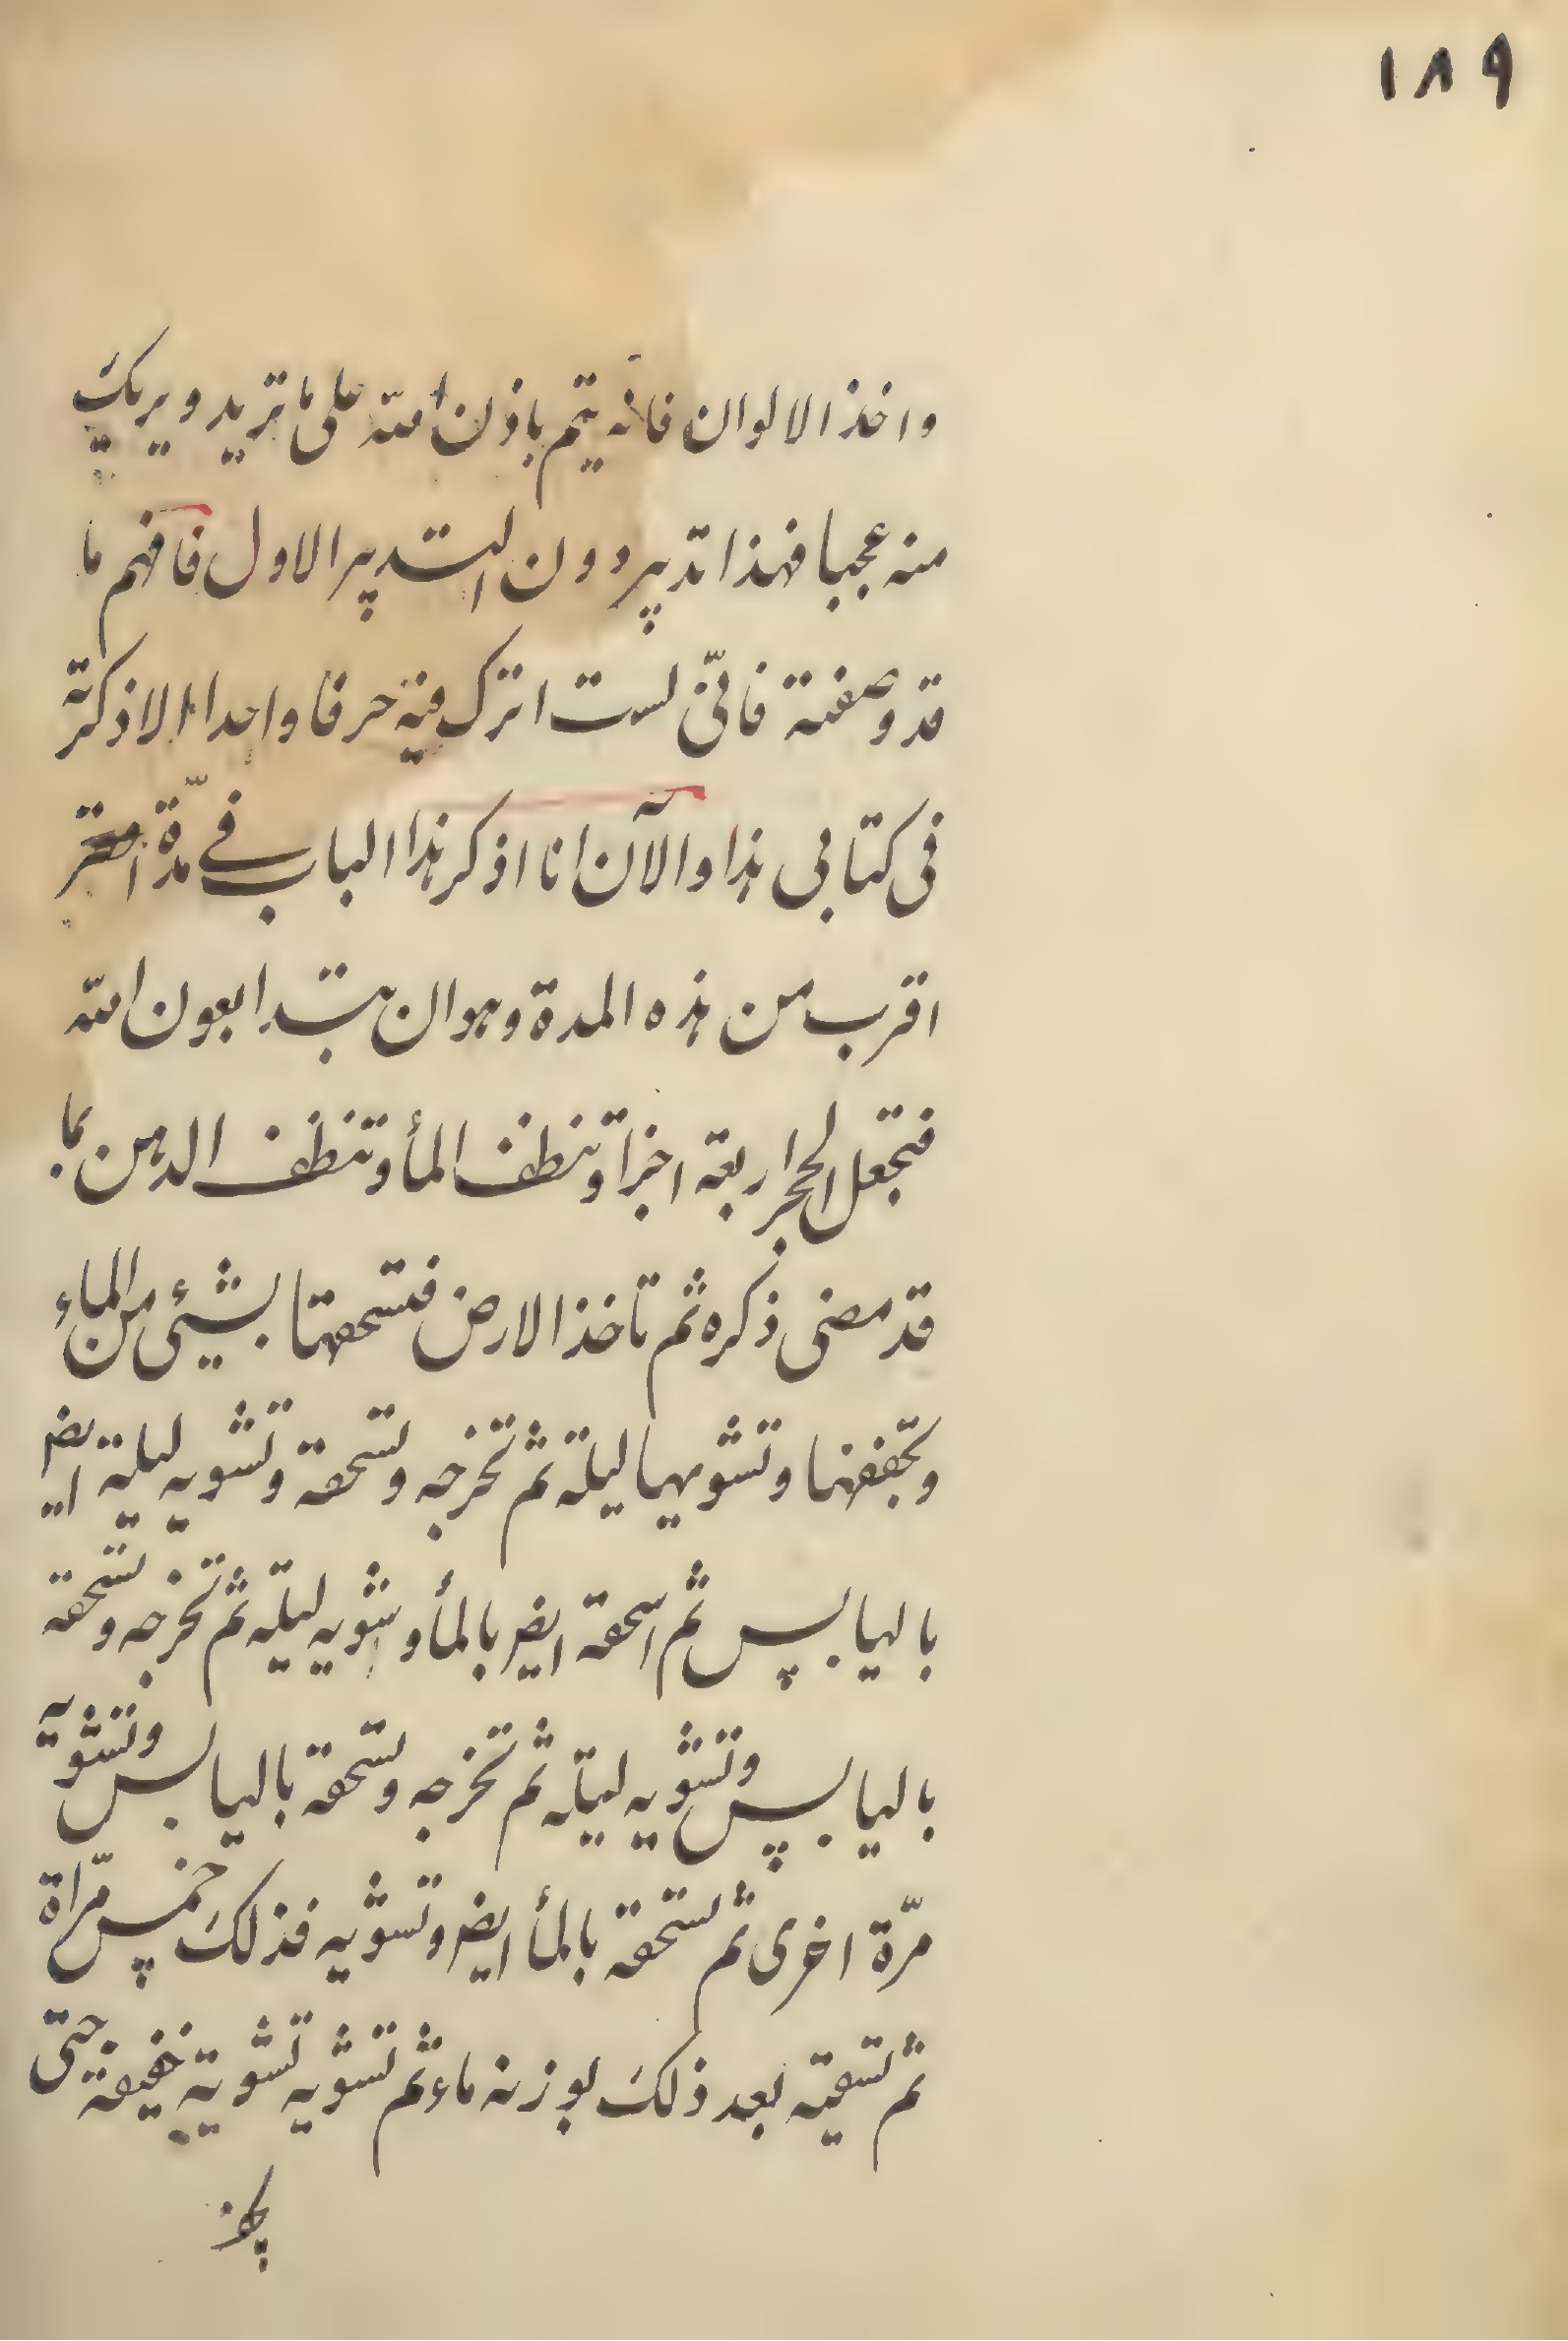 ١٨٩
واخذ الالوان فانه يتم باذن الله على ما تريد ويريك
منه عجبا فهذا تدبير دون التدبير الاول فافهم ما
قد وصفته فانّى لست اترك فيه حرفا واحدا الا ذكرته
فى كتابى هذا والآن انا اذكر هذا الباب فے مدّة
اقرب من هذه المدة وهو ان تبتدا بعون الله
فتجعل الحجر اربعة اجزا وتنظف المأ وتنظف الدهن بما
قد مضى ذكره ثم تاخذ الارض فتسحقها بشيئى من الماء
وتجففها وتشويها ليلة ثم تخرجه وتسحقه وتشويه ليلة ايض
باليابس ثم اسحقه ايض بالمأ وشويه ليلة ثم تخرجه وتسحقه
باليابس وتشويه ليلة ثم تخرجه وتسحقه باليابس وتشويه
مرّة اخرى ثم تسحقه بالمأ ايض وتشويه فذلك خمس مرّاة
ثم تسقيه بعد ذلك بوزنه ماء ثم تشويه تشوية خفيفة حتى
يجف